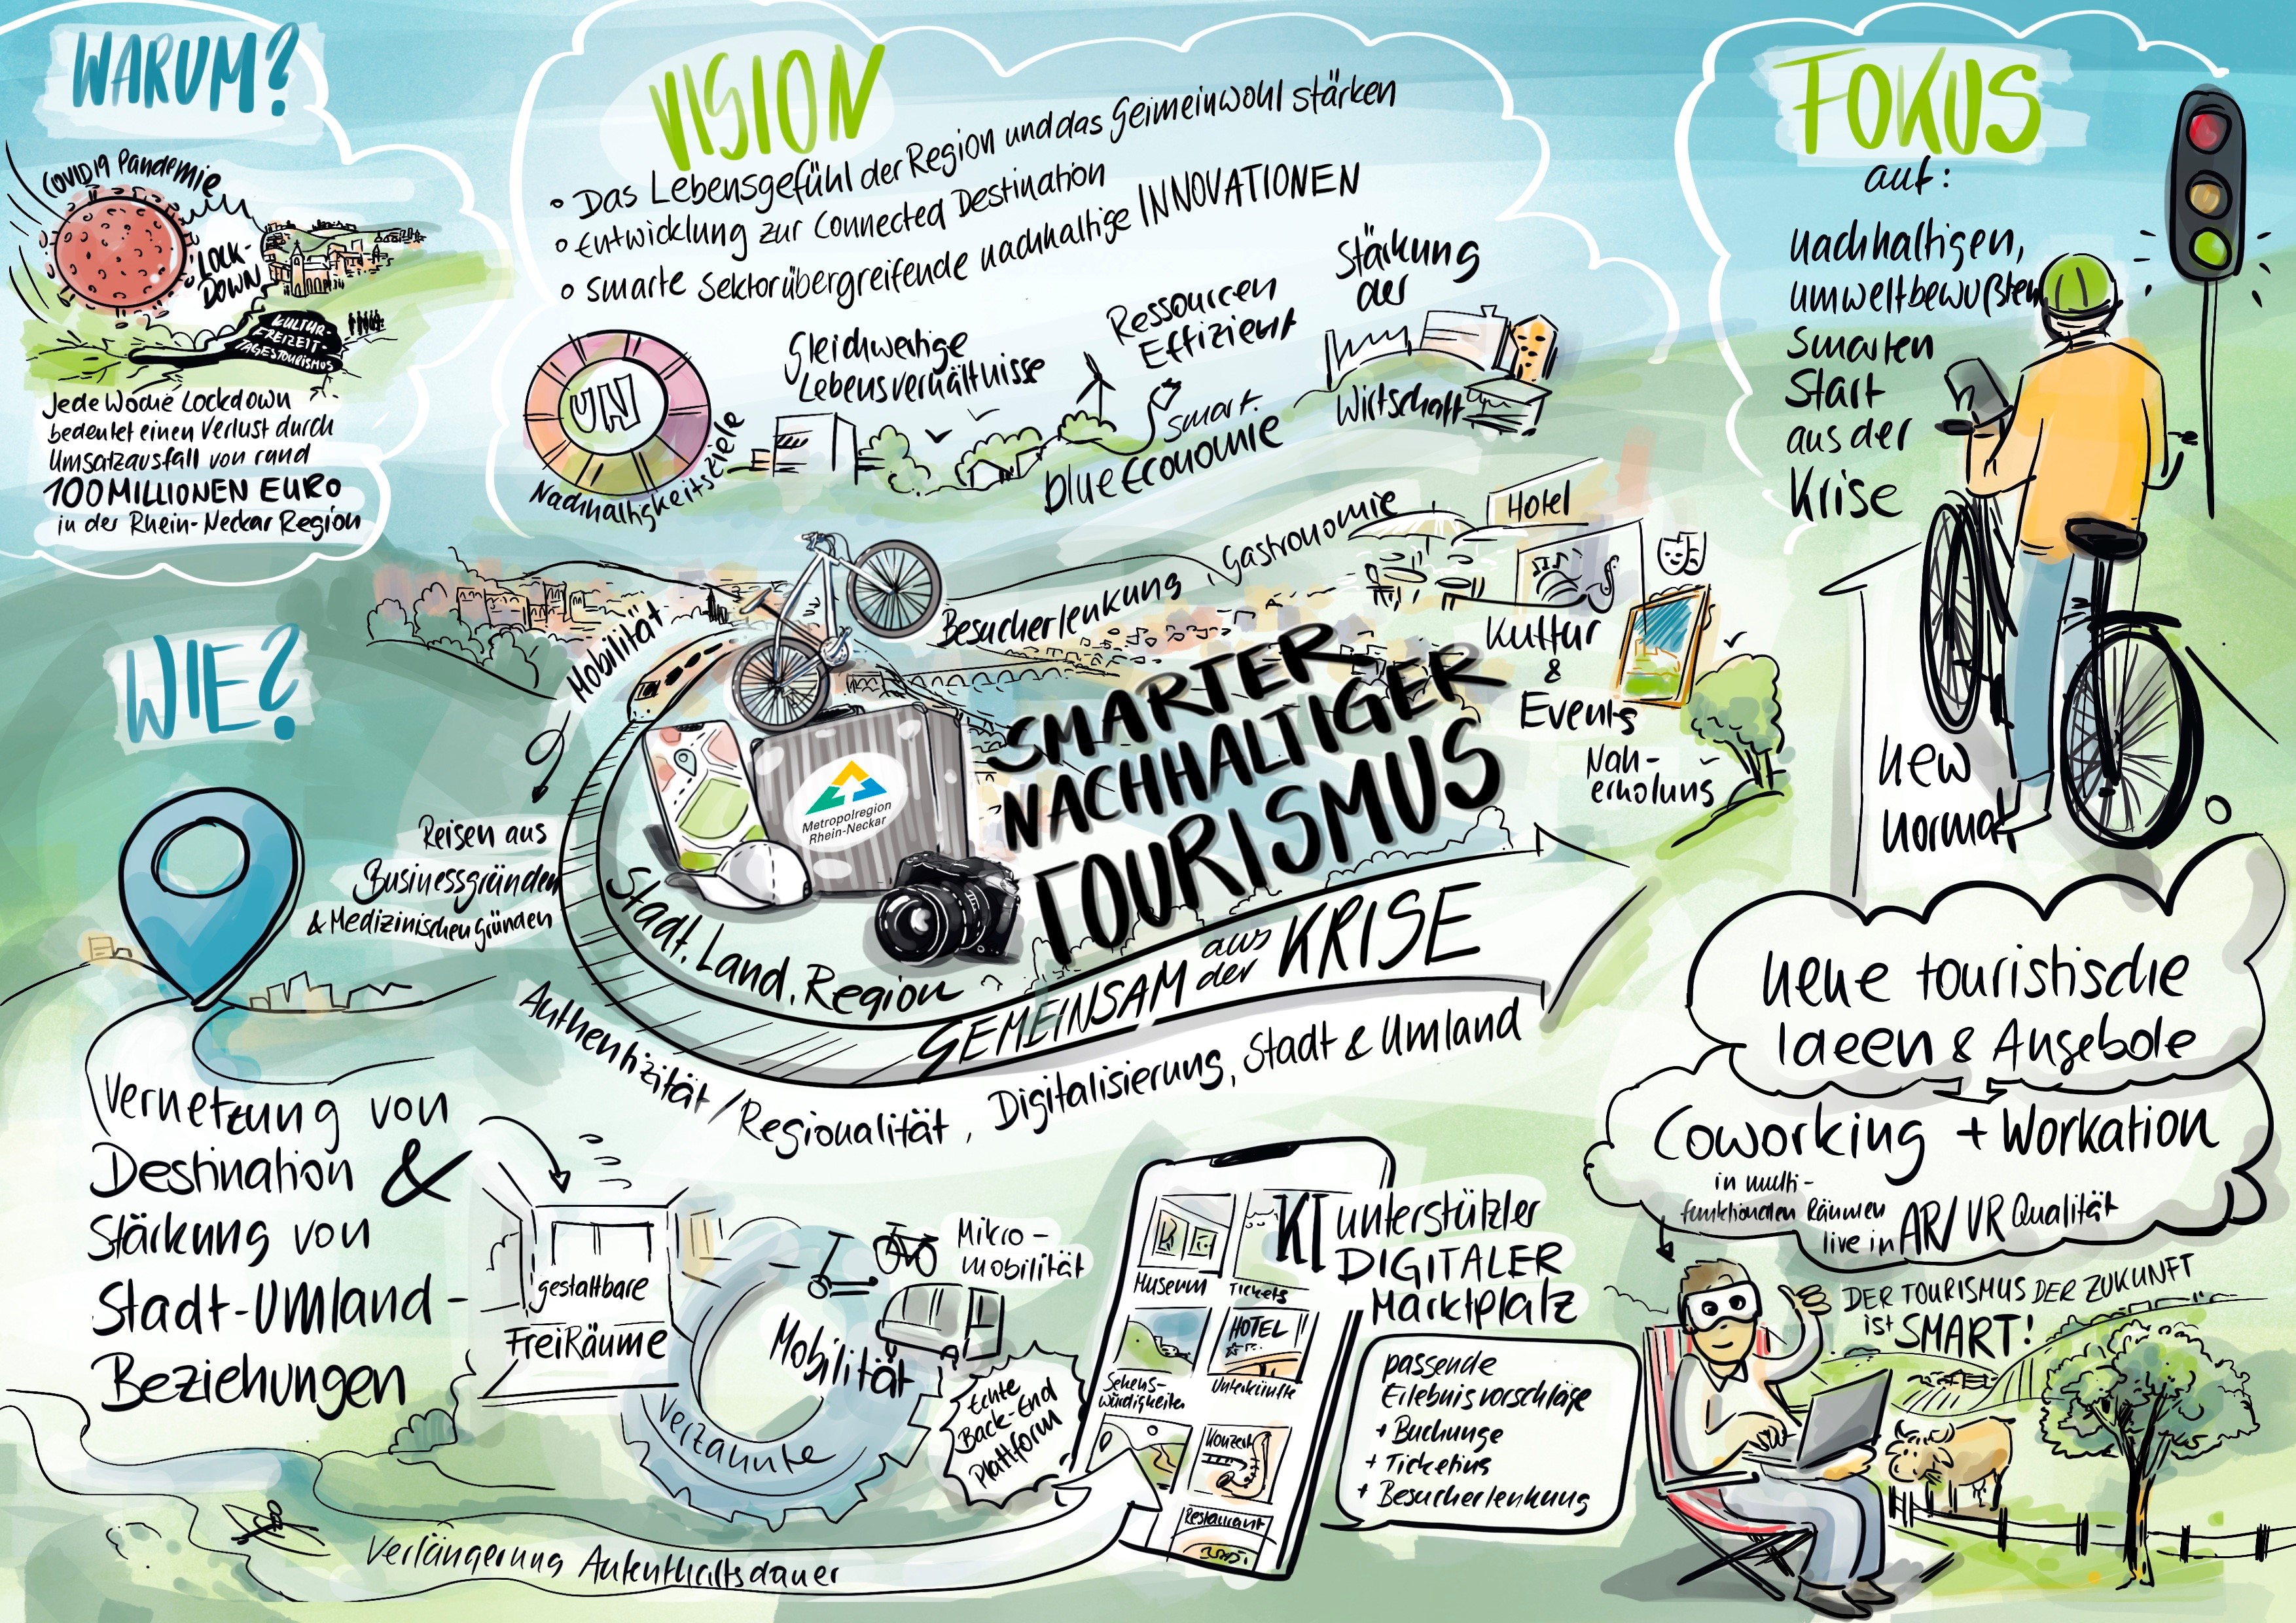 WARUM?
COVID19 Pandemie
LOCK-
DOWN
KULTUR-
FREIZEIT-
TAGESTOURISMOS
Jede Woche Lockdown
bedeutet einen Verlust durch
Umsatzausfall von rund
100 MILLIONEN EURO
in der Rhein-Neckar Region
VISION
Das Lebensgefühl der Region und das Geimeinwohl stärken
Entwicklung zur Connected Destination
smarte sektorübergreifende nachhaltige INNOVATIONEN
UN
Nachhaltigkeitsziele
Gleichwertige
Lebensverhältnisse
Ressourcen
Effizient
smart.
blue Economie
Stärkung
der
Wirtschaft
FOKUS
auf:
nachhaltigen,
umweltbewußten
smarten
Start
aus der
Krise
new
normal
WIE?
Mobilität
Besucherlenkung, Gastronomie
Hotel
Kultur
&
Events
Nah-
erholung
Metropolregion
Rhein-Neckar
SMARTER
NACHHALTIGER
TOURISMUS
Reisen aus
Businessgründen
& Medizinischen Gründen
Stadt, Land, Region
GEMEINSAM aus der KRISE
Authentizität/Regionalität, Digitalisierung, Stadt & Umland
Vernetzung von
Destination &
Stärkung von
Stadt-Umland-
Beziehungen
gestaltbare
FreiRäume
Verzahnte
Mobilität
Mikro-
mobilität
Echte
Back-End
Plattform
Verlängerung Aufenthaltsdauer
Museum
Tickets
HOTEL
Sehens-
würdigkeiten
Unterkünfte
Konzert
Restaurant
KI unterstützter
DIGITALER
Marktplatz
passende
Erlebnisvorschläge
+ Buchunge
+ Ticketing
+ Besucherlenkung
neue touristische
Ideen & Angebote
Coworking + Workation
in multi-
funktionalen Räumen
live in AR/VR Qualität
DER TOURISMUS DER ZUKUNFT
ist SMART!